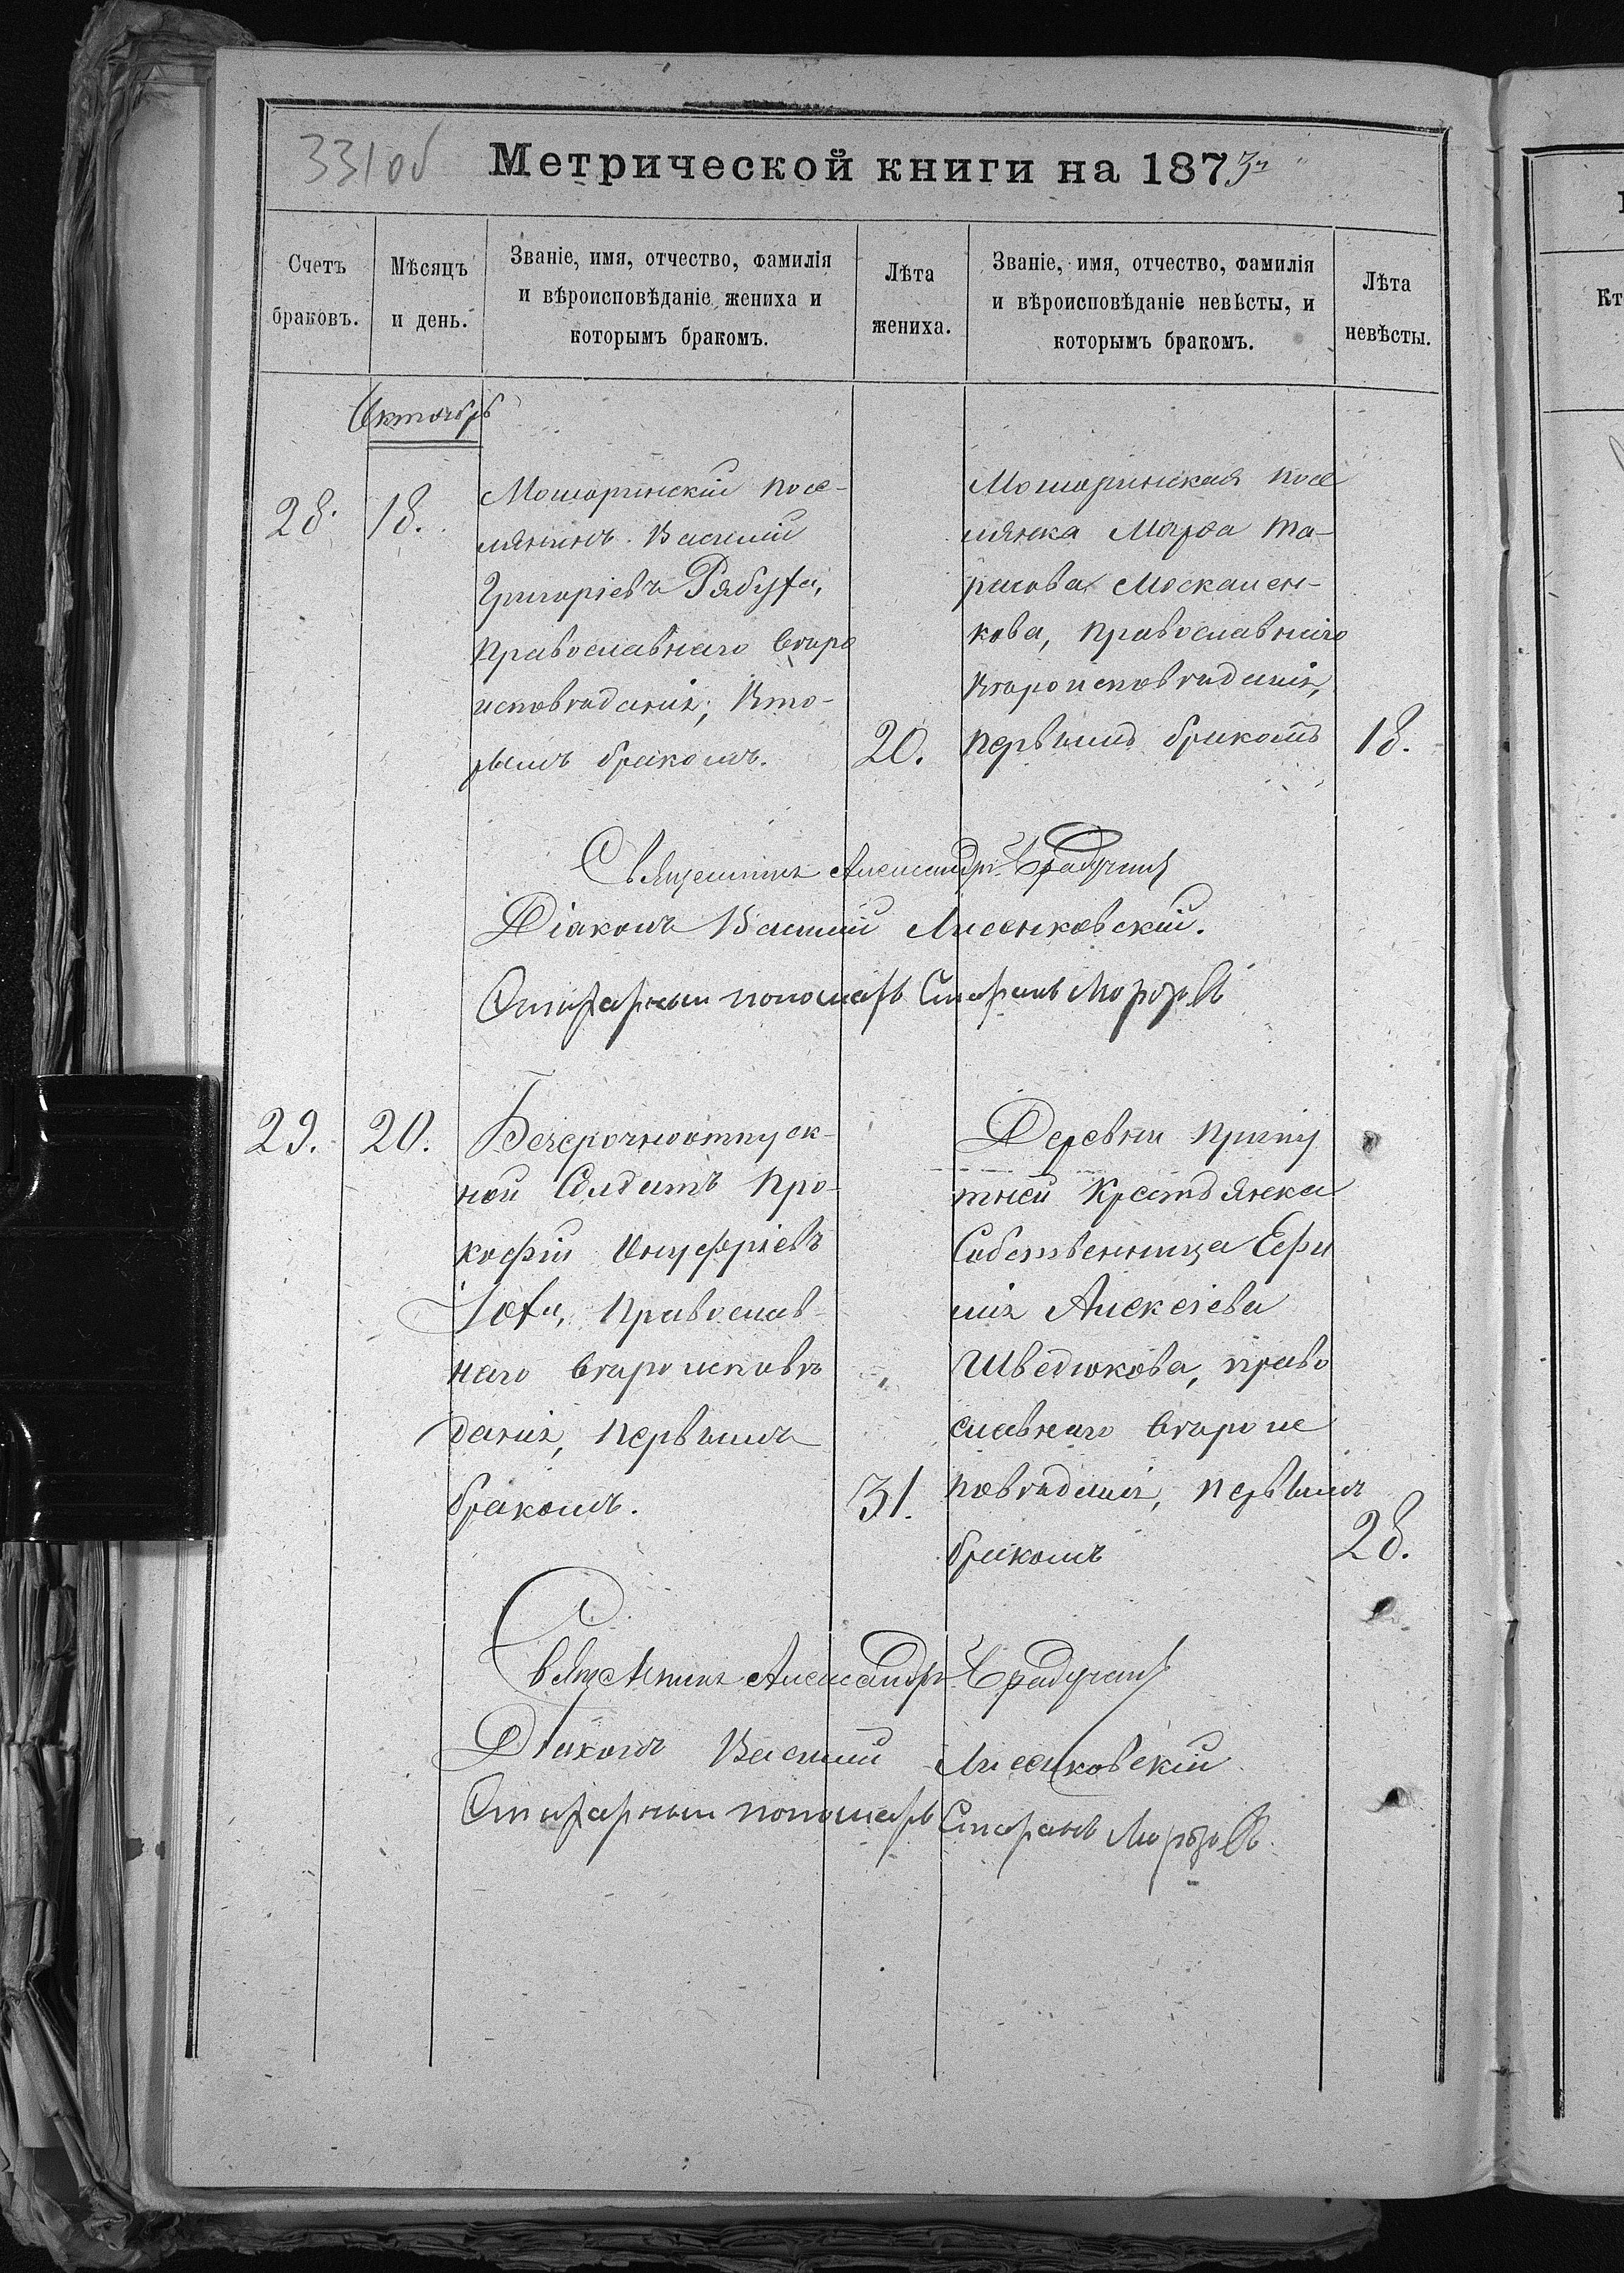 331об
Метрической книги на 1873
Счетъ браковъ.
Мѣсяцъ и день.
Званіе, имя, отчество, фамилія
и вѣроисповѣданіе жениха и
которымъ бракомъ.
Лѣта
жениха.
Званіе, имя, отчество, фамилія
и вѣроисповѣданіе невѣсты, и
которымъ бракомъ.
Лѣта
невѣсты.
Октобрь
28.
18.
Мошоринскій посе-
лянинъ Василій
Григоріевъ Рябуха,
православнаго вѣро
исповѣданія; вто-
рымъ бракомъ.
20.
Мошоринская посе
лянка Марѳа Та-
расова Москален-
кова, православнаго
вѣроисповѣданія,
первымъ бракомъ
18.
Священникъ Александръ
Діаконъ Василій Лисенковскій.
пономарь Морозовъ
29.
20.
Безсрочноотпуск-
ной Солдатъ Про-
кофій Онуфріевъ
Іоха, православ-
наго вѣроисповѣ
данія, первымъ
бракомъ.
31.
Деревни Припу
тней Крестьянка
Собственница Ефи
мія Алексіева
Шведюкова, право
славнаго вѣроис
повѣданія, первымъ
бракомъ
28.
Священникъ Александръ
Діаконъ Василій Лисенковскій
пономарь Морозовъ